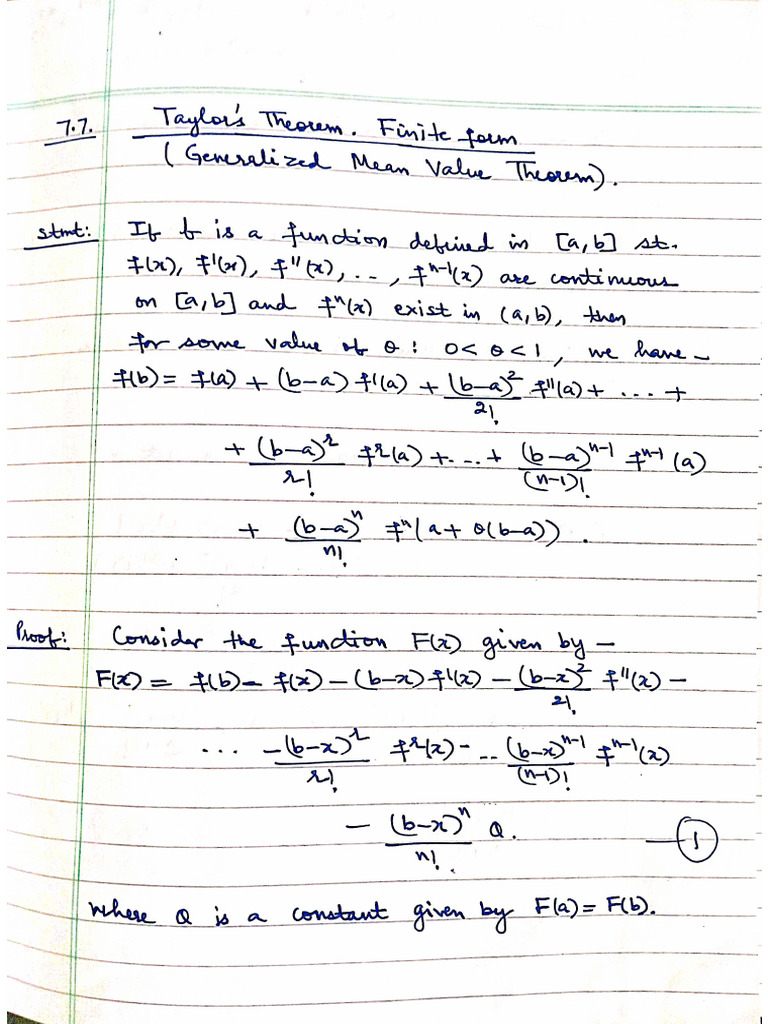 7.7. Taylor's Theorem. Finite form
(Generalized Mean Value Theorem).
stmt: If f is a function defined in [a,b] st.
f(x), f'(x), f''(x), .., fⁿ⁻¹(x) are continuous
on [a,b] and fⁿ(x) exist in (a,b), then
for some value of θ : 0<θ<1, we have –
f(b) = f(a) + (b-a) f'(a) + (b-a)²/2! f''(a) + ... +
+ (b-a)ʳ/r! fʳ(a) + ... + (b-a)ⁿ⁻¹/(n-1)! fⁿ⁻¹(a)
+ (b-a)ⁿ/n! fⁿ(a + θ(b-a)).
Proof: Consider the function F(x) given by –
F(x) = f(b) – f(x) – (b-x) f'(x) – (b-x)²/2! f''(x) –
... – (b-x)ʳ/r! fʳ(x) – .. (b-x)ⁿ⁻¹/(n-1)! fⁿ⁻¹(x)
– (b-x)ⁿ/n! Q. — ①
where Q is a constant given by F(a) = F(b).